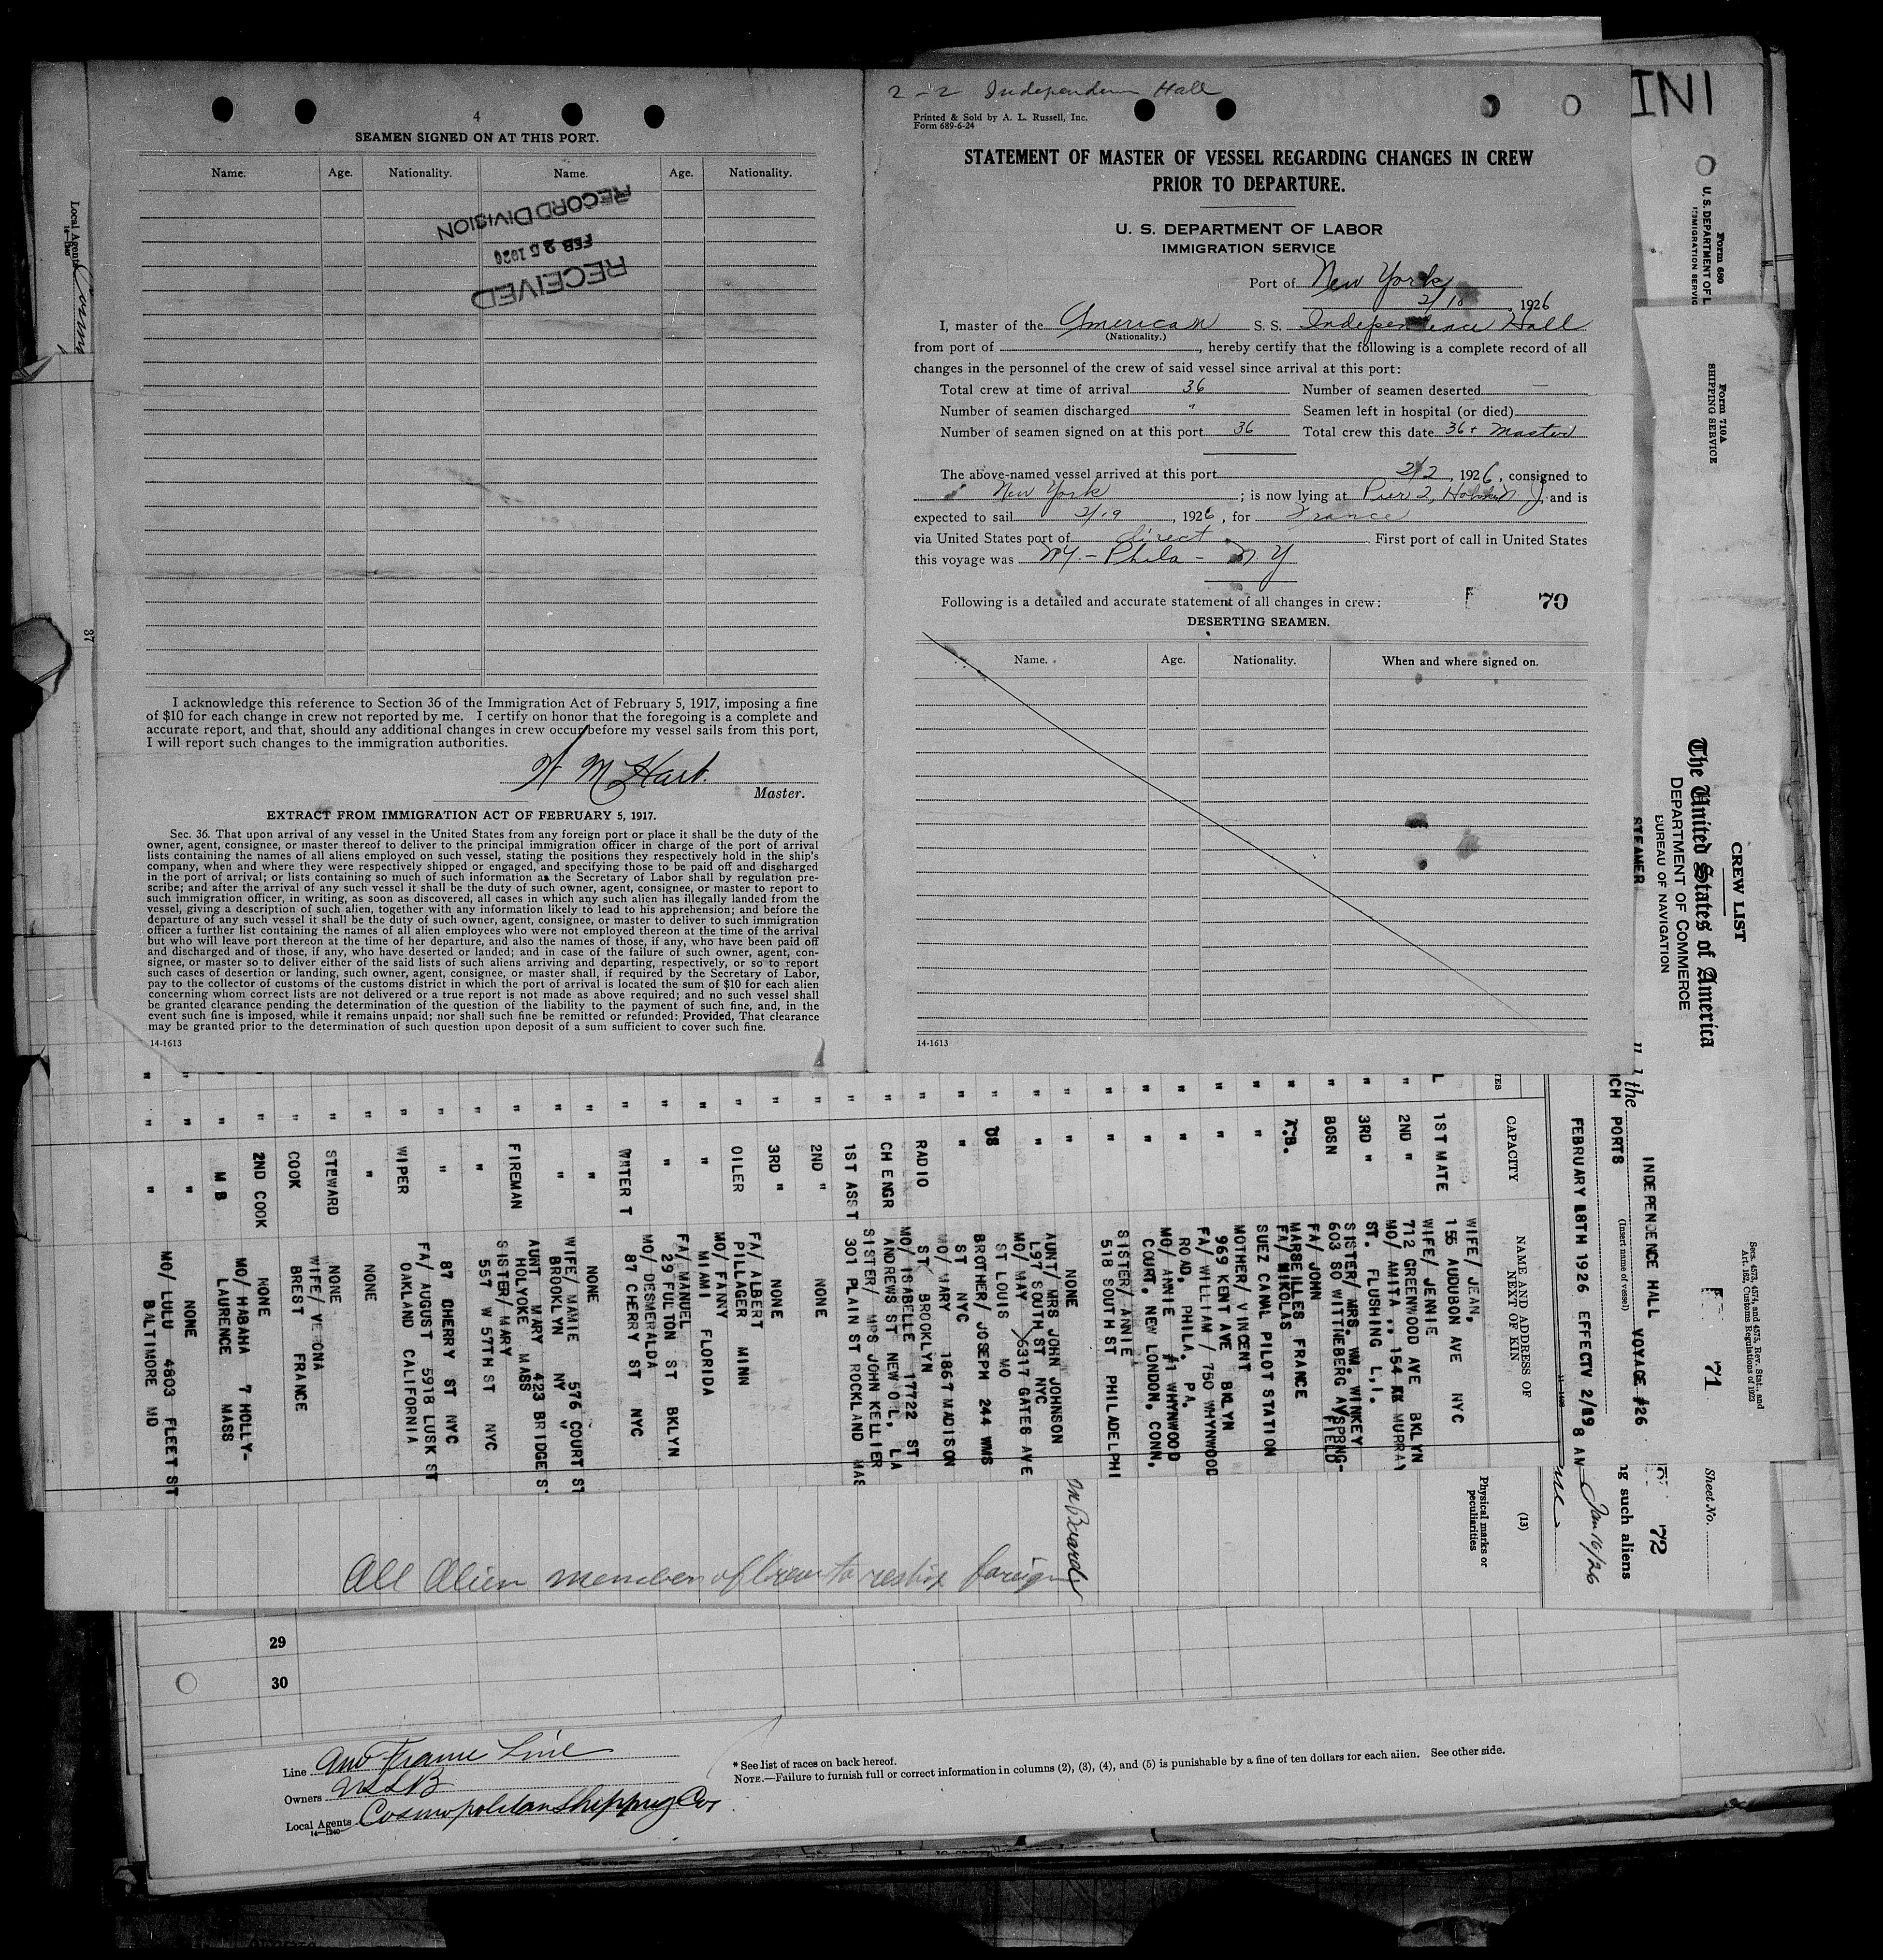 4
SEAMEN SIGNED ON AT THIS PORT.
Name. Age. Nationality. Name. Age. Nationality.
RECORD DIVISION
FEB 25 1926
RECEIVED
I acknowledge this reference to Section 36 of the Immigration Act of February 5, 1917, imposing a fine
of $10 for each change in crew not reported by me. I certify on honor that the foregoing is a complete and
accurate report, and that, should any additional changes in crew occur before my vessel sails from this port,
I will report such changes to the immigration authorities.
W M Hart.
Master.
EXTRACT FROM IMMIGRATION ACT OF FEBRUARY 5, 1917.
Sec. 36. That upon arrival of any vessel in the United States from any foreign port or place it shall be the duty of the
owner, agent, consignee, or master thereof to deliver to the principal immigration officer in charge of the port of arrival
lists containing the names of all aliens employed on such vessel, stating the positions they respectively hold in the ship's
company, when and where they were respectively shipped or engaged, and specifying those to be paid off and discharged
in the port of arrival; or lists containing so much of such information as the Secretary of Labor shall by regulation pre-
scribe; and after the arrival of any such vessel it shall be the duty of such owner, agent, consignee, or master to report to
such immigration officer, in writing, as soon as discovered, all cases in which any such alien has illegally landed from the
vessel, giving a description of such alien, together with any information likely to lead to his apprehension; and before the
departure of any such vessel it shall be the duty of such owner, agent, consignee, or master to deliver to such immigration
officer a further list containing the names of all alien employees who were not employed thereon at the time of the arrival
but who will leave port thereon at the time of her departure, and also the names of those, if any, who have been paid off
and discharged and of those, if any, who have deserted or landed; and in case of the failure of such owner, agent, con-
signee, or master so to deliver either of the said lists of such aliens arriving and departing, respectively, or so to report
such cases of desertion or landing, such owner, agent, consignee, or master shall, if required by the Secretary of Labor,
pay to the collector of customs of the customs district in which the port of arrival is located the sum of $10 for each alien
concerning whom correct lists are not delivered or a true report is not made as above required; and no such vessel shall
be granted clearance pending the determination of the question of the liability to the payment of such fine, and, in the
event such fine is imposed, while it remains unpaid; nor shall such fine be remitted or refunded: Provided, That clearance
may be granted prior to the determination of such question upon deposit of a sum sufficient to cover such fine.
14-1613
2-2 Independence Hall
Printed & Sold by A. L. Russell, Inc.
Form 689-6-24
STATEMENT OF MASTER OF VESSEL REGARDING CHANGES IN CREW
PRIOR TO DEPARTURE.
U. S. DEPARTMENT OF LABOR
IMMIGRATION SERVICE
Port of New York
2/18, 1926
I, master of the American S. S. Independence Hall
(Nationality.)
from port of , hereby certify that the following is a complete record of all
changes in the personnel of the crew of said vessel since arrival at this port:
Total crew at time of arrival 36 Number of seamen deserted —
Number of seamen discharged " Seamen left in hospital (or died)
Number of seamen signed on at this port 36 Total crew this date 36 + Master
The above-named vessel arrived at this port 2/2, 1926, consigned to
New York ; is now lying at Pier 2, Hoboken J and is
expected to sail 2/19, 1926, for France
via United States port of direct First port of call in United States
this voyage was NY - Phila - N.Y
Following is a detailed and accurate statement of all changes in crew: 70
DESERTING SEAMEN.
Name. Age. Nationality. When and where signed on.
14-1613
INI
Form 680
U. S. DEPARTMENT OF L
IMMIGRATION SERVIC
Form 710A
SHIPPING SERVICE
CREW LIST
The United States of America
DEPARTMENT OF COMMERCE
BUREAU OF NAVIGATION
STEAMER
Secs. 4573, 4574, and 4575, Rev. Stat., and
Art. 162, Customs Regulations of 1923
71
Sheet No.
INDEPENDENCE HALL VOYAGE #26
72
(Insert name of vessel)
the
ng such aliens
ICH PORTS
FEBRUARY 18TH 1926 EFFECTV 2/19 8 AM
Jan 16/26
CAPACITY NAME AND ADDRESS OF
NEXT OF KIN
(13)
Physical marks or
peculiarities
WIFE/ JEAN,
1ST MATE 155 AUDUBON AVE NYC
WIFE/ JENNIE
2ND " 712 GREENWOOD AVE BKLYN
MO/ AMITA .. 154 MURRAY
3RD " ST. FLUSHING L.I.
SISTER/ MRS. WM. WINKEY
BOSN 603 SO WITTNEBERG AV SPRNG-
FIELD
FA/ JOHN
MARSEILLES FRANCE
A.B. FA/ NIKOLAS
" SUEZ CANAL PILOT STATION
MOTHER/ VINCENT
" 969 KENT AVE BKLYN
FA/ WILLIAM / 750 WHYNWOOD
" ROAD, PHILA. PA.
MO/ ANNIE #1 WHYNWOOD
" COURT, NEW LONDON, CONN.
SISTER/ ANNIE
" 518 SOUTH ST PHILADELPHI
" NONE
AUNT/ MRS JOHN JOHNSON
" L97 SOUTH ST NYC
MO/ MAY 6317 GATES AVE
OS ST LOUIS MO
BROTHER/ JOSEPH 244 WMS
" ST NYC
MO/ MARY 1867 MADISON
RADIO ST BROOKLYN
MO/ ISABELLE 17722 ST
CH ENGR ANDREWS ST NEW OL, LA
SISTER/ MRS JOHN KELLIER
1ST ASST 301 PLAIN ST ROCKLAND MAS
2ND " NONE
3RD " NONE
FA/ ALBERT
OILER PILLAGER MINN
MO/ FANNY
" MIAMI FLORIDA
FA/ MANUEL
" 29 FULTON ST BKLYN
MO/ DESMERALDA
WATER T 87 CHERRY ST NYC
" NONE
WIFE/ MAMIE 576 COURT ST
" BROOKLYN NY
AUNT MARY 423 BRIDGE S
FIREMAN HOLYOKE MASS
SISTER/ MARY
" 557 W 57TH ST NYC
" 87 CHERRY ST NYC
FA/ AUGUST 5918 LUSK ST
WIPER OAKLAND CALIFORNIA
" NONE
STEWARD NONE
WIFE/ VERONA
COOK BREST FRANCE
2ND COOK NONE
MO/ HABAHA 7 HOLLY-
M B LAURENCE MASS
" NONE
MO/ LULU 4803 FLEET ST
" BALTIMORE MD
All Alien members of crew to reship foreign
37
Local Agents
14—1240
29
30
Line Am France Line
Owners USSB
Local Agents Cosmopolitan Shipping Co,
14—1240
* See list of races on back hereof.
NOTE.—Failure to furnish full or correct information in columns (2), (3), (4), and (5) is punishable by a fine of ten dollars for each alien. See other side.